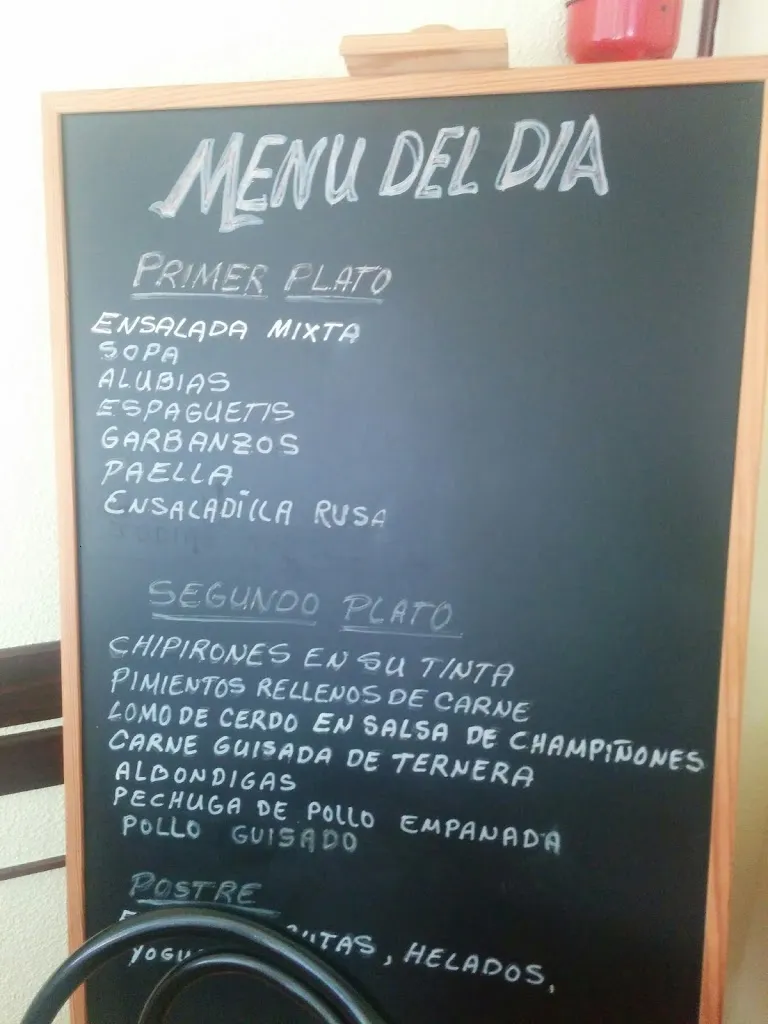 MENU DEL DIA
PRIMER PLATO
ENSALADA MIXTA
SOPA
ALUBIAS
ESPAGUETIS
GARBANZOS
PAELLA
ENSALADILLA RUSA
SEGUNDO PLATO
CHIPIRONES EN SU TINTA
PIMIENTOS RELLENOS DE CARNE
LOMO DE CERDO EN SALSA DE CHAMPIÑONES
CARNE GUISADA DE TERNERA
ALBONDIGAS
PECHUGA DE POLLO EMPANADA
POLLO GUISADO
POSTRE
, HELADOS,